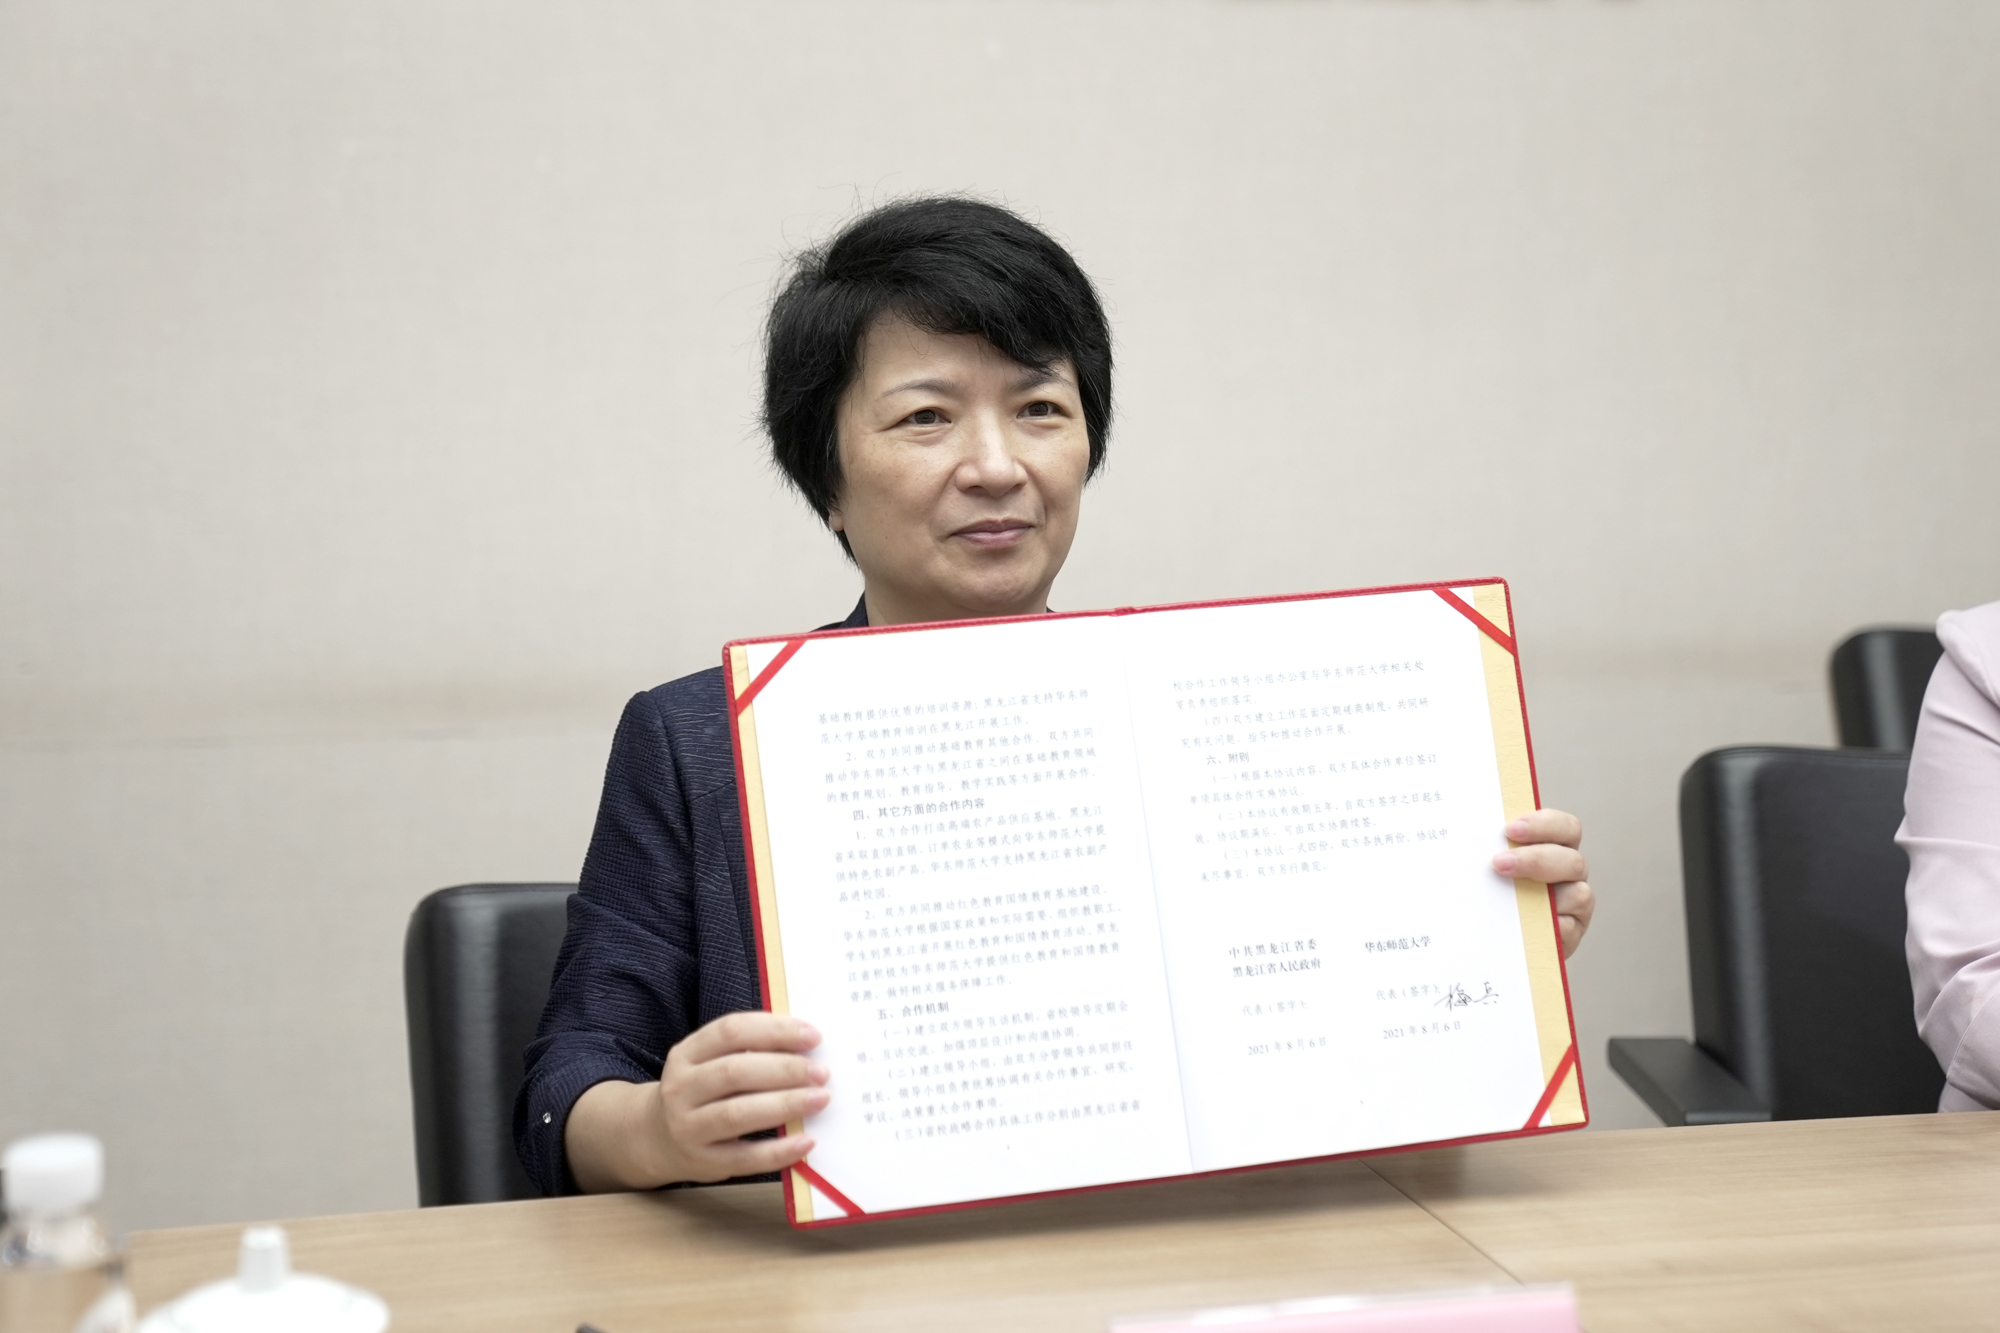 基础教育提供优质的培训资源；黑龙江省支持华东师
范大学基础教育培训在黑龙江开展工作。
2、双方共同推动基础教育其他合作。双方共同
推动华东师范大学与黑龙江省之间在基础教育领域
的教育规划、教育指导、教学实践等方面开展合作。
四、其它方面的合作内容
1、双方合作打造高端农产品供应基地。黑龙江
省采取直供直销、订单农业等模式向华东师范大学提
供特色农副产品。华东师范大学支持黑龙江省农副产
品进校园。
2、双方共同推动红色教育国情教育基地建设。
华东师范大学根据国家政策和实际需要，组织教职工、
学生到黑龙江省开展红色教育和国情教育活动。黑龙
江省积极为华东师范大学提供红色教育和国情教育
资源，做好相关服务保障工作。
五、合作机制
（一）建立双方领导互访机制。省校领导定期会
晤、互访交流，加强顶层设计和沟通协调。
（二）建立领导小组。由双方分管领导共同担任
组长，领导小组负责统筹协调有关合作事宜，研究、
审议、决策重大合作事项。
（三）省校战略合作具体工作分别由黑龙江省省
校合作工作领导小组办公室与华东师范大学相关处
室负责组织落实。
（四）双方建立工作层面定期磋商制度，共同研
究有关问题，指导和推动合作开展。
六、附则
（一）根据本协议内容，双方具体合作单位签订
单项具体合作实施协议。
（二）本协议有效期五年，自双方签字之日起生
效。协议期满后，可由双方协商续签。
（三）本协议一式四份，双方各执两份。协议中
未尽事宜，双方另行商定。
中共黑龙江省委 华东师范大学
黑龙江省人民政府
代表（签字） 代表（签字） 梅兵
2021年8月6日 2021年8月6日